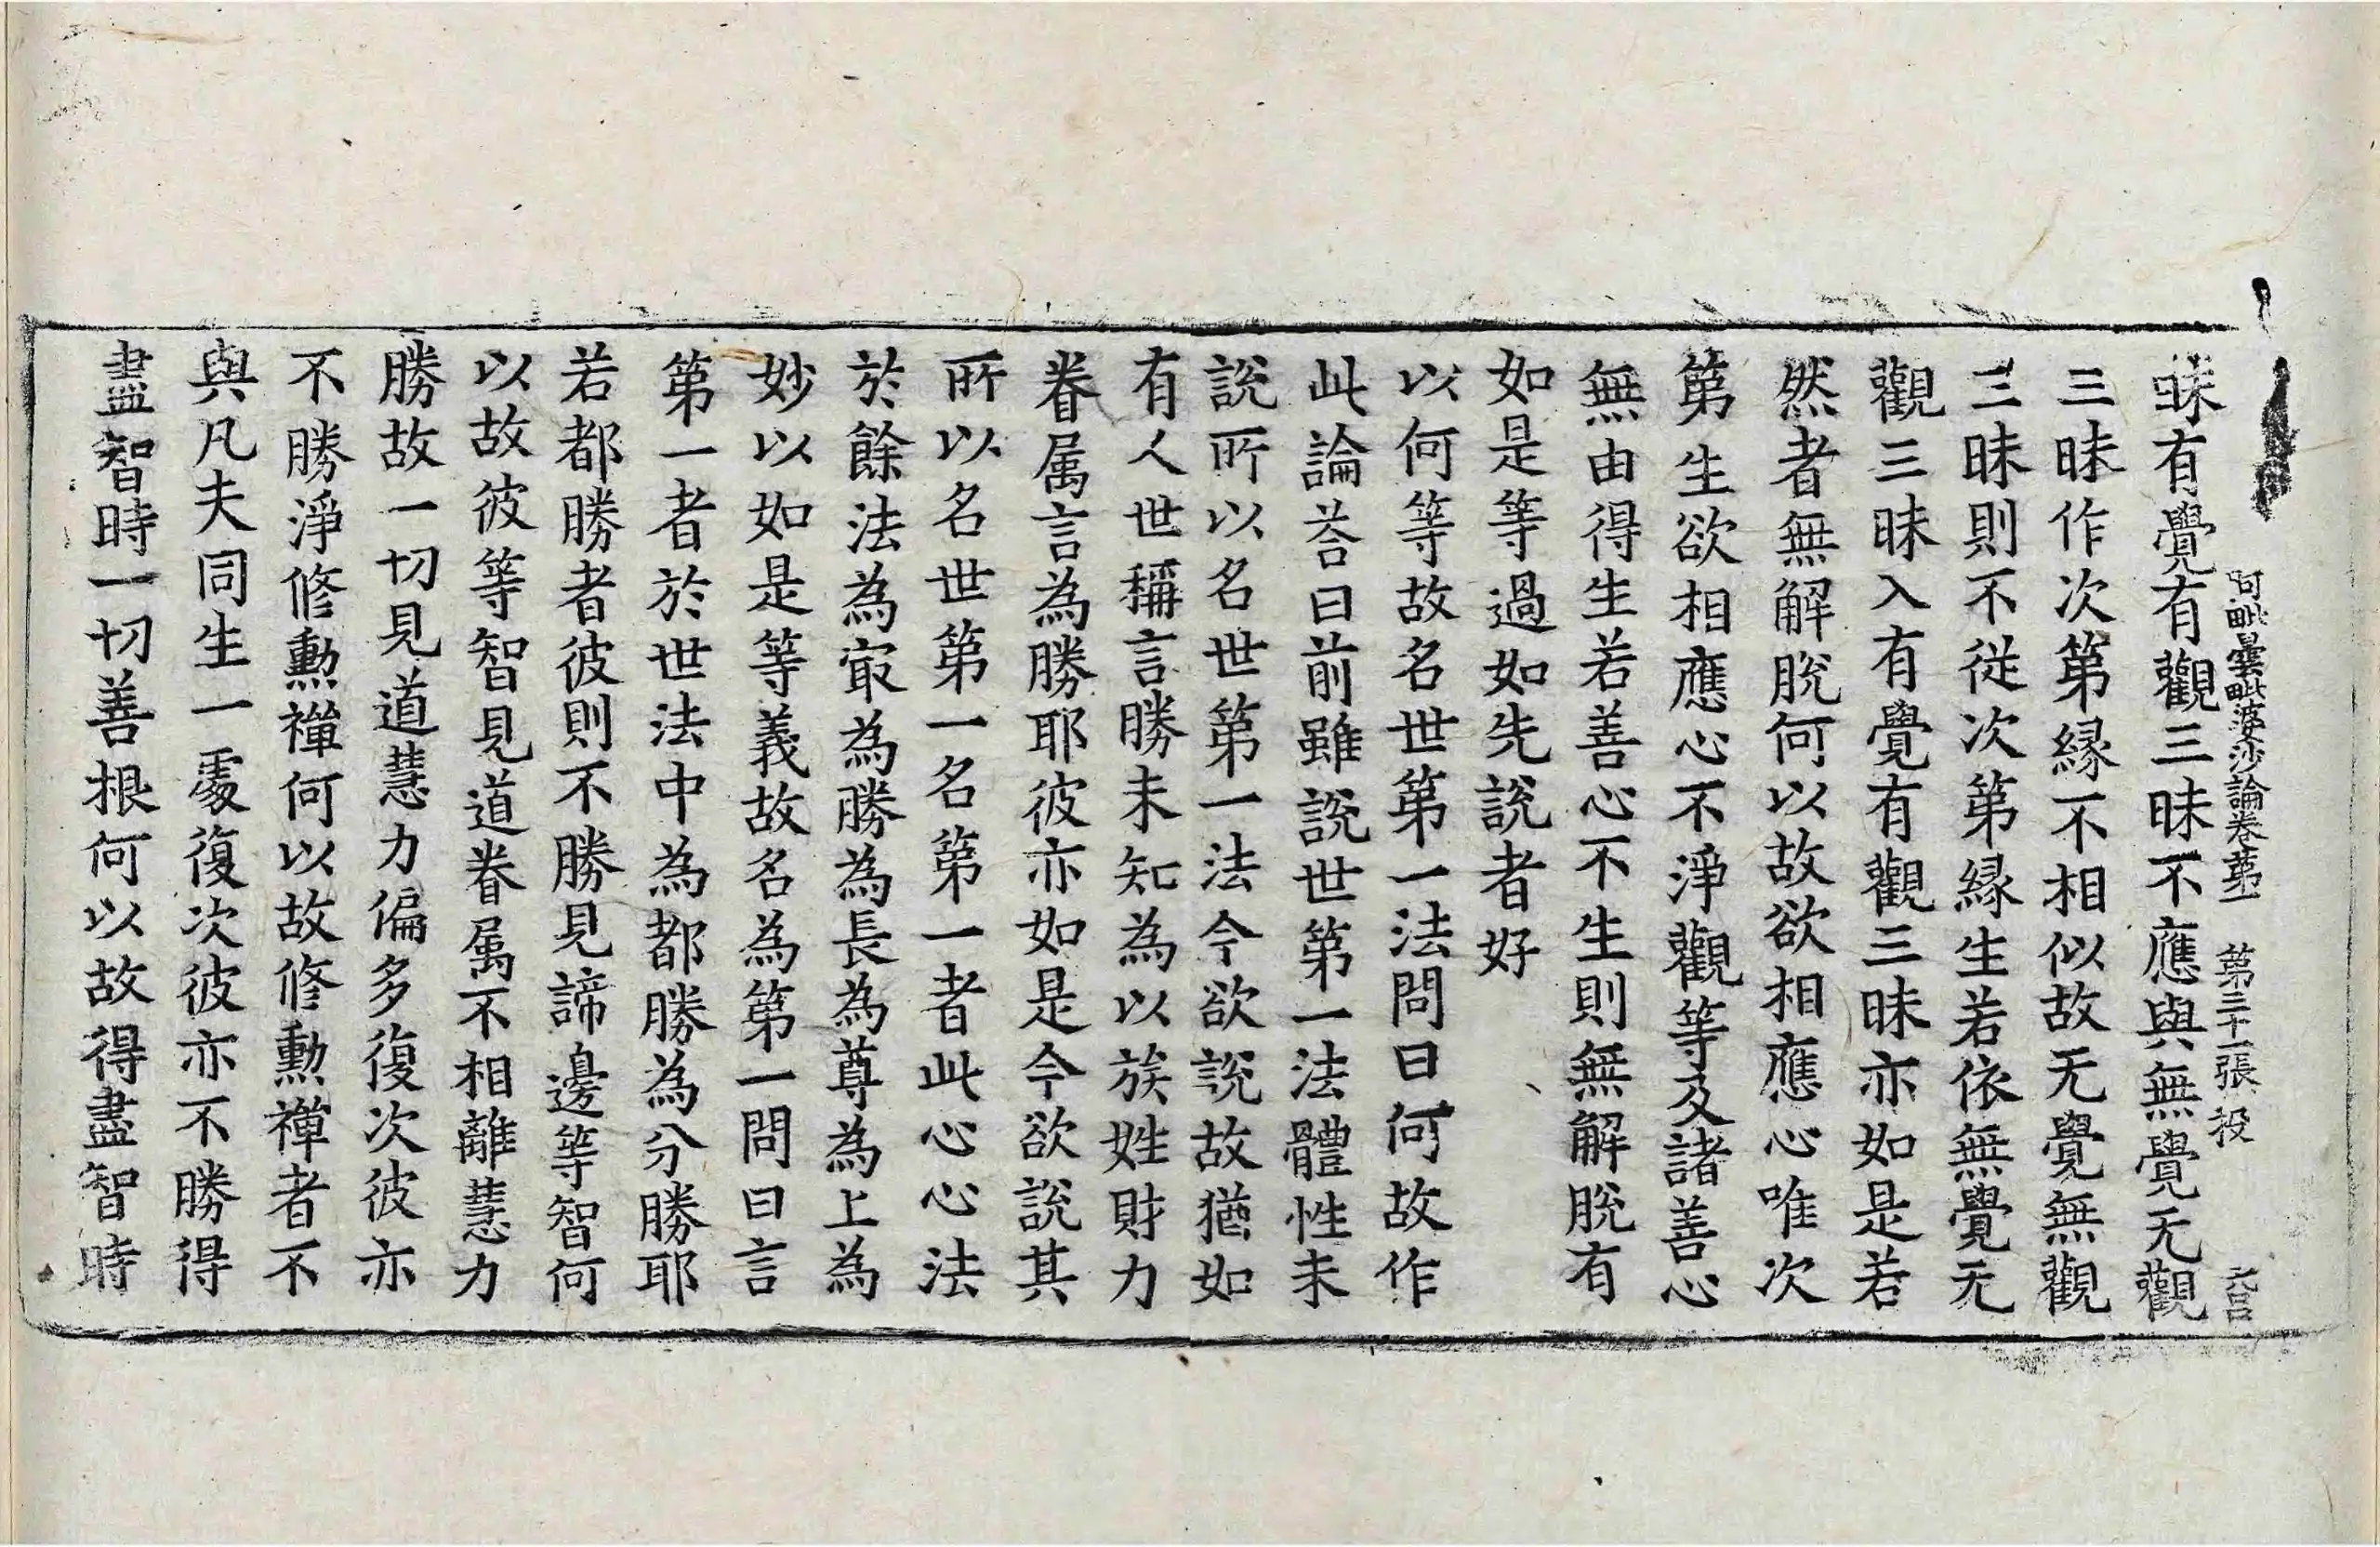 阿毗曇毗婆沙論卷第一 第三十一張 投
昧有覺有觀三昧不應與無覺无觀
三昧作次第緣不相似故无覺無觀
三昧則不從次第緣生若依無覺无
觀三昧入有覺有觀三昧亦如是若
然者無解脫何以故欲相應心唯次
第生欲相應心不淨觀等及諸善心
無由得生若善心不生則無解脫有
如是等過如先說者好
以何等故名世第一法問曰何故作
此論荅曰前雖說世第一法體性未
說所以名世第一法今欲說故猶如
有人世稱言勝未知為以族姓財力
眷属言為勝耶彼亦如是今欲說其
所以名世第一名第一者此心心法
於餘法為冣為勝為長為尊為上為
妙以如是等義故名為第一問曰言
第一者於世法中為都勝為分勝耶
若都勝者彼則不勝見諦邊等智何
以故彼等智見道眷属不相離慧力
勝故一切見道慧力偏多復次彼亦
不勝淨修勳禪何以故修勳禪者不
與凡夫同生一處復次彼亦不勝得
盡智時一切善根何以故得盡智時